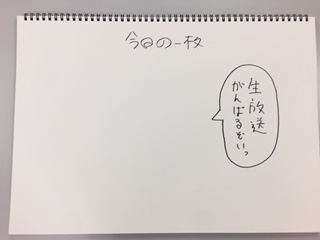 今日の一枚
生放送
がんばるぞいっ